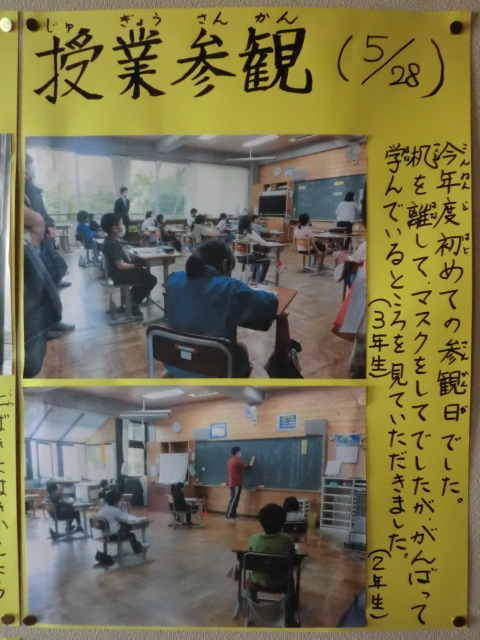 じゅ ぎょう さん かん
授業参観 (5/28)
こんねんど はじ さんかんび
今年度初めての参観日でした。
机を離して、マスクをしてでしたが、がんばって
学んでいるところを見ていただきました。
(3年生)
(2年生)